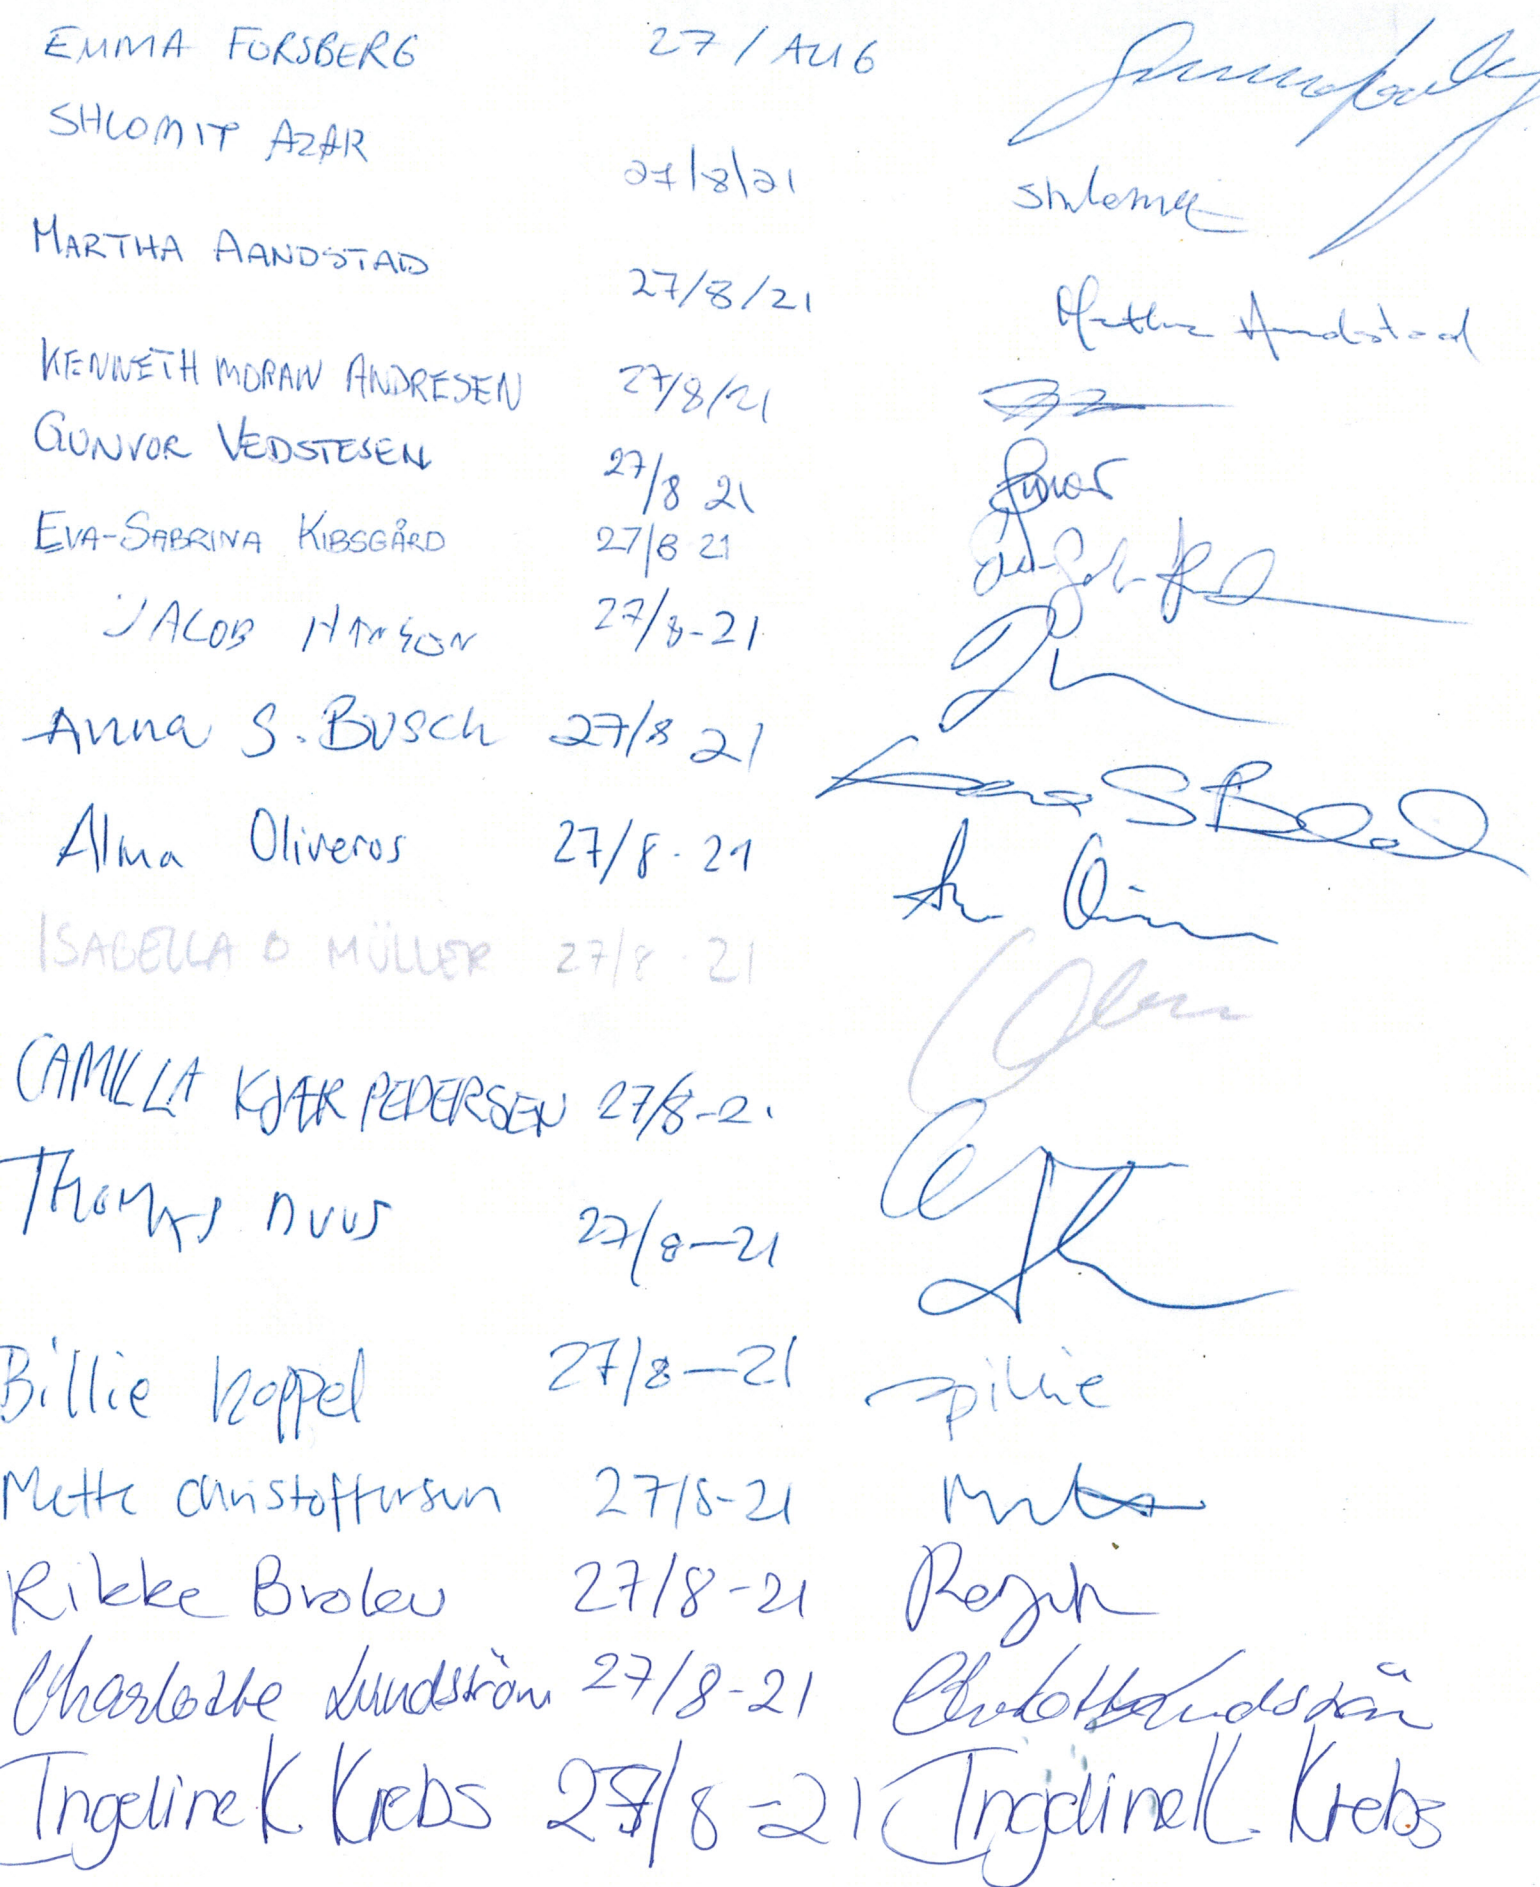 EMMA FORSBERG 27 / AUG
SHLOMIT AZAR 27/8/21
MARTHA AANDSTAD 27/8/21 Martha Aandstad
KENNETH MORAN ANDRESEN 27/8/21
GUNVOR VEDSTESEN 27/8 21
EVA-SABRINA KIBSGÅRD 27/8 21
JACOB HANSON 27/8-21
Anna S. Busch 27/8 21
Alma Oliveros 27/8.21
ISABELLA O MÜLLER 27/8.21
CAMILLA KJÆR PEDERSEN 27/8-21
THOMAS DUUS 27/8-21
Billie Koppel 27/8-21
Mette Christoffersen 27/8-21
Rikke Brolev 27/8-21
Charlotte Lundström 27/8-21 Charlotte Lundström
Ingeline K. Krebs 27/8-21 Ingeline K. Krebs